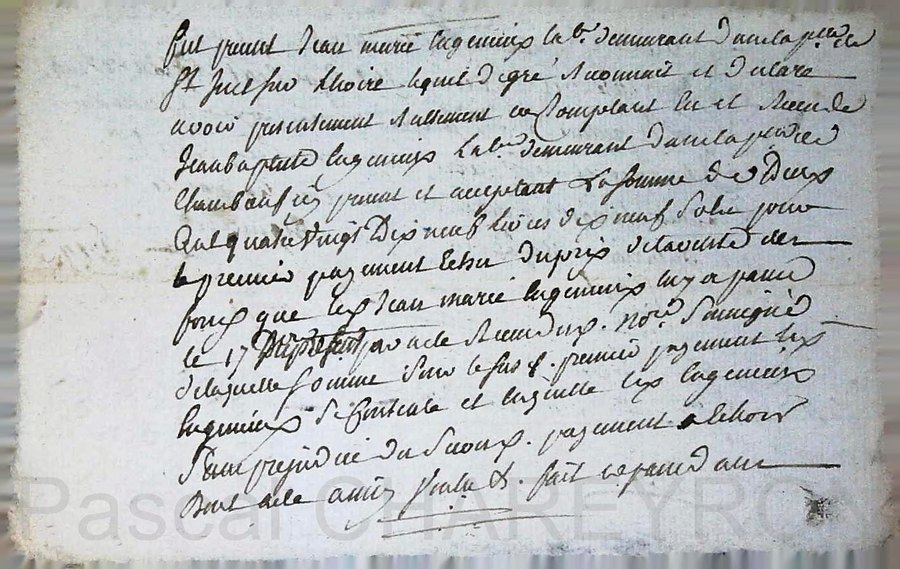 fut present Jean marie Lagenieux lab.r demeurant dans la p.sse de
St Just sur Lhoire lequel de gré Reconnait et declare
avoir presentement Reellement en Comptant eu et Receu de
Jean baptiste Lagenieux Lab.r demeurant dans la p.sse de
Chambauf icy present et acceptant La somme de Deux
Cent quatre vingt Dix neuf livres dix neuf Sols pour
le premier payement Echu du prix de la vente des
fonds que led. Jean marie Lagenieux luy a passé
le 17 par acte Receu dud. no.re Soussigné
de laquelle Somme pour le sus d. premier payement led.
Lagenieux Se Contente et en quitte led. Lagenieux
Sans prejudice du Second payement a Echoir
Dont acte ainsy voulu &. fait et passé dans
Pascal CHAREYRON